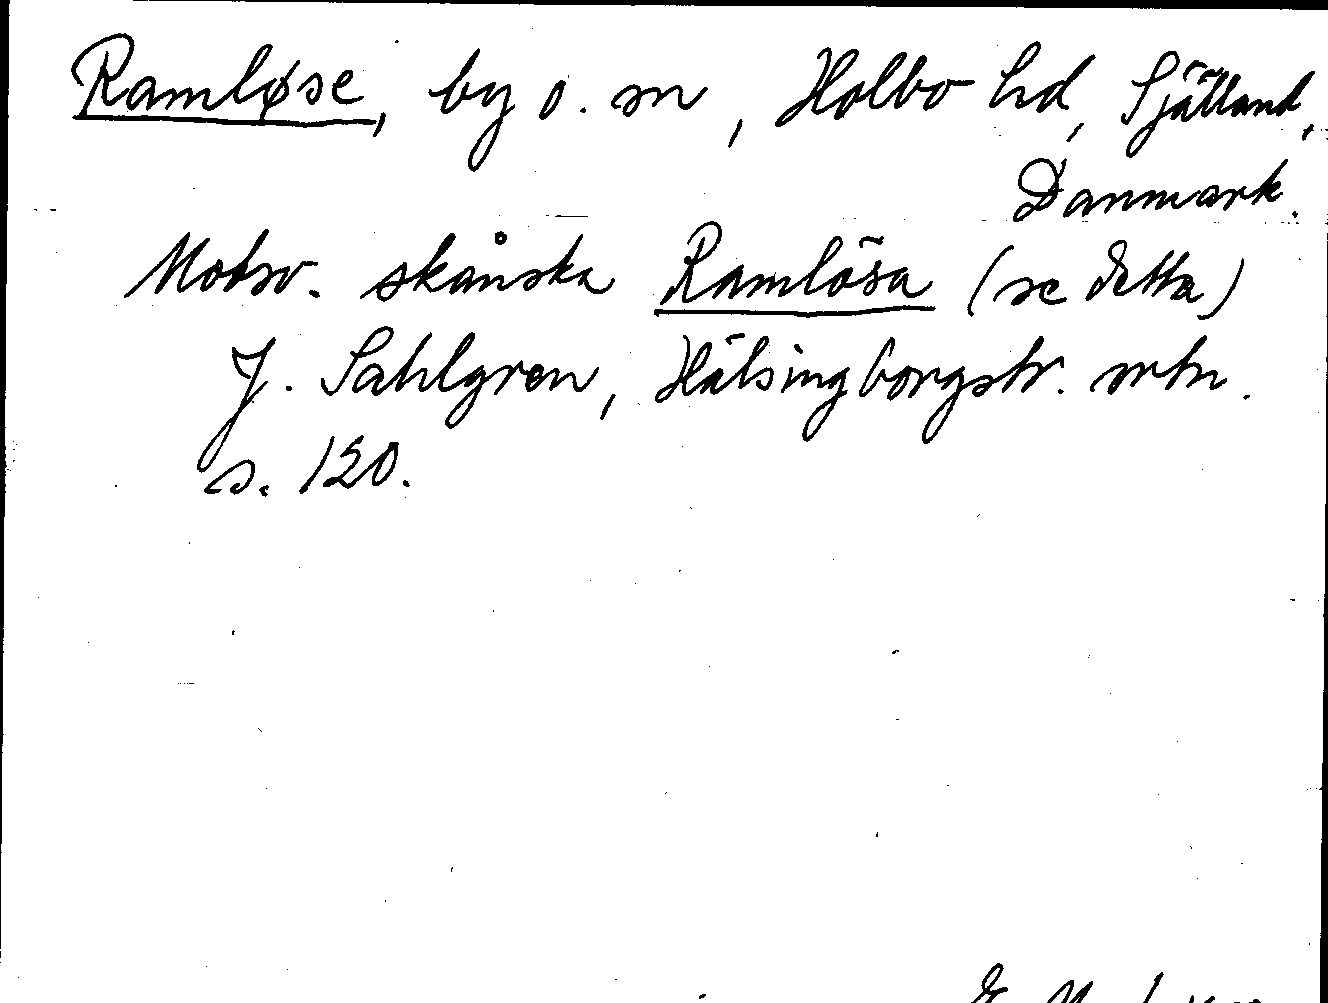 Ramløse, by o. sn, Holbo hd, Själland,
Danmark.
Motsv. skånska Ramlösa (se detta)
J. Sahlgren, Hälsingborgstr. ortn.
s. 120.